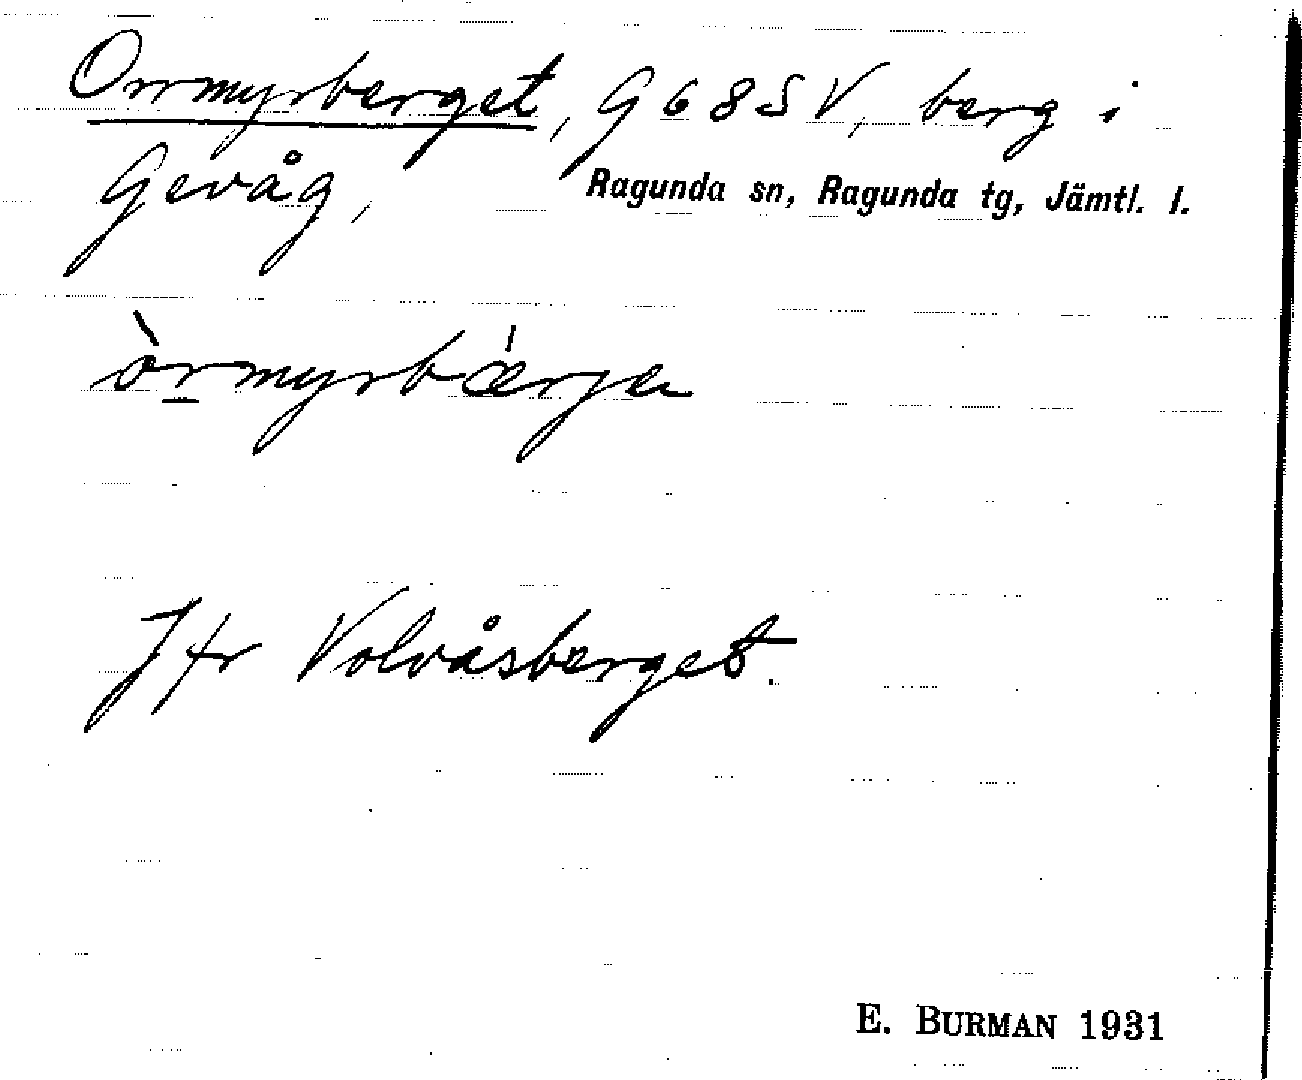 Orrmyrberget, G 68 SV, berg i
Gevåg, Ragunda sn, Ragunda tg, Jämtl. l.
òrmyrbǽrjen
Jfr Volvåsberget.
E. BURMAN 1931